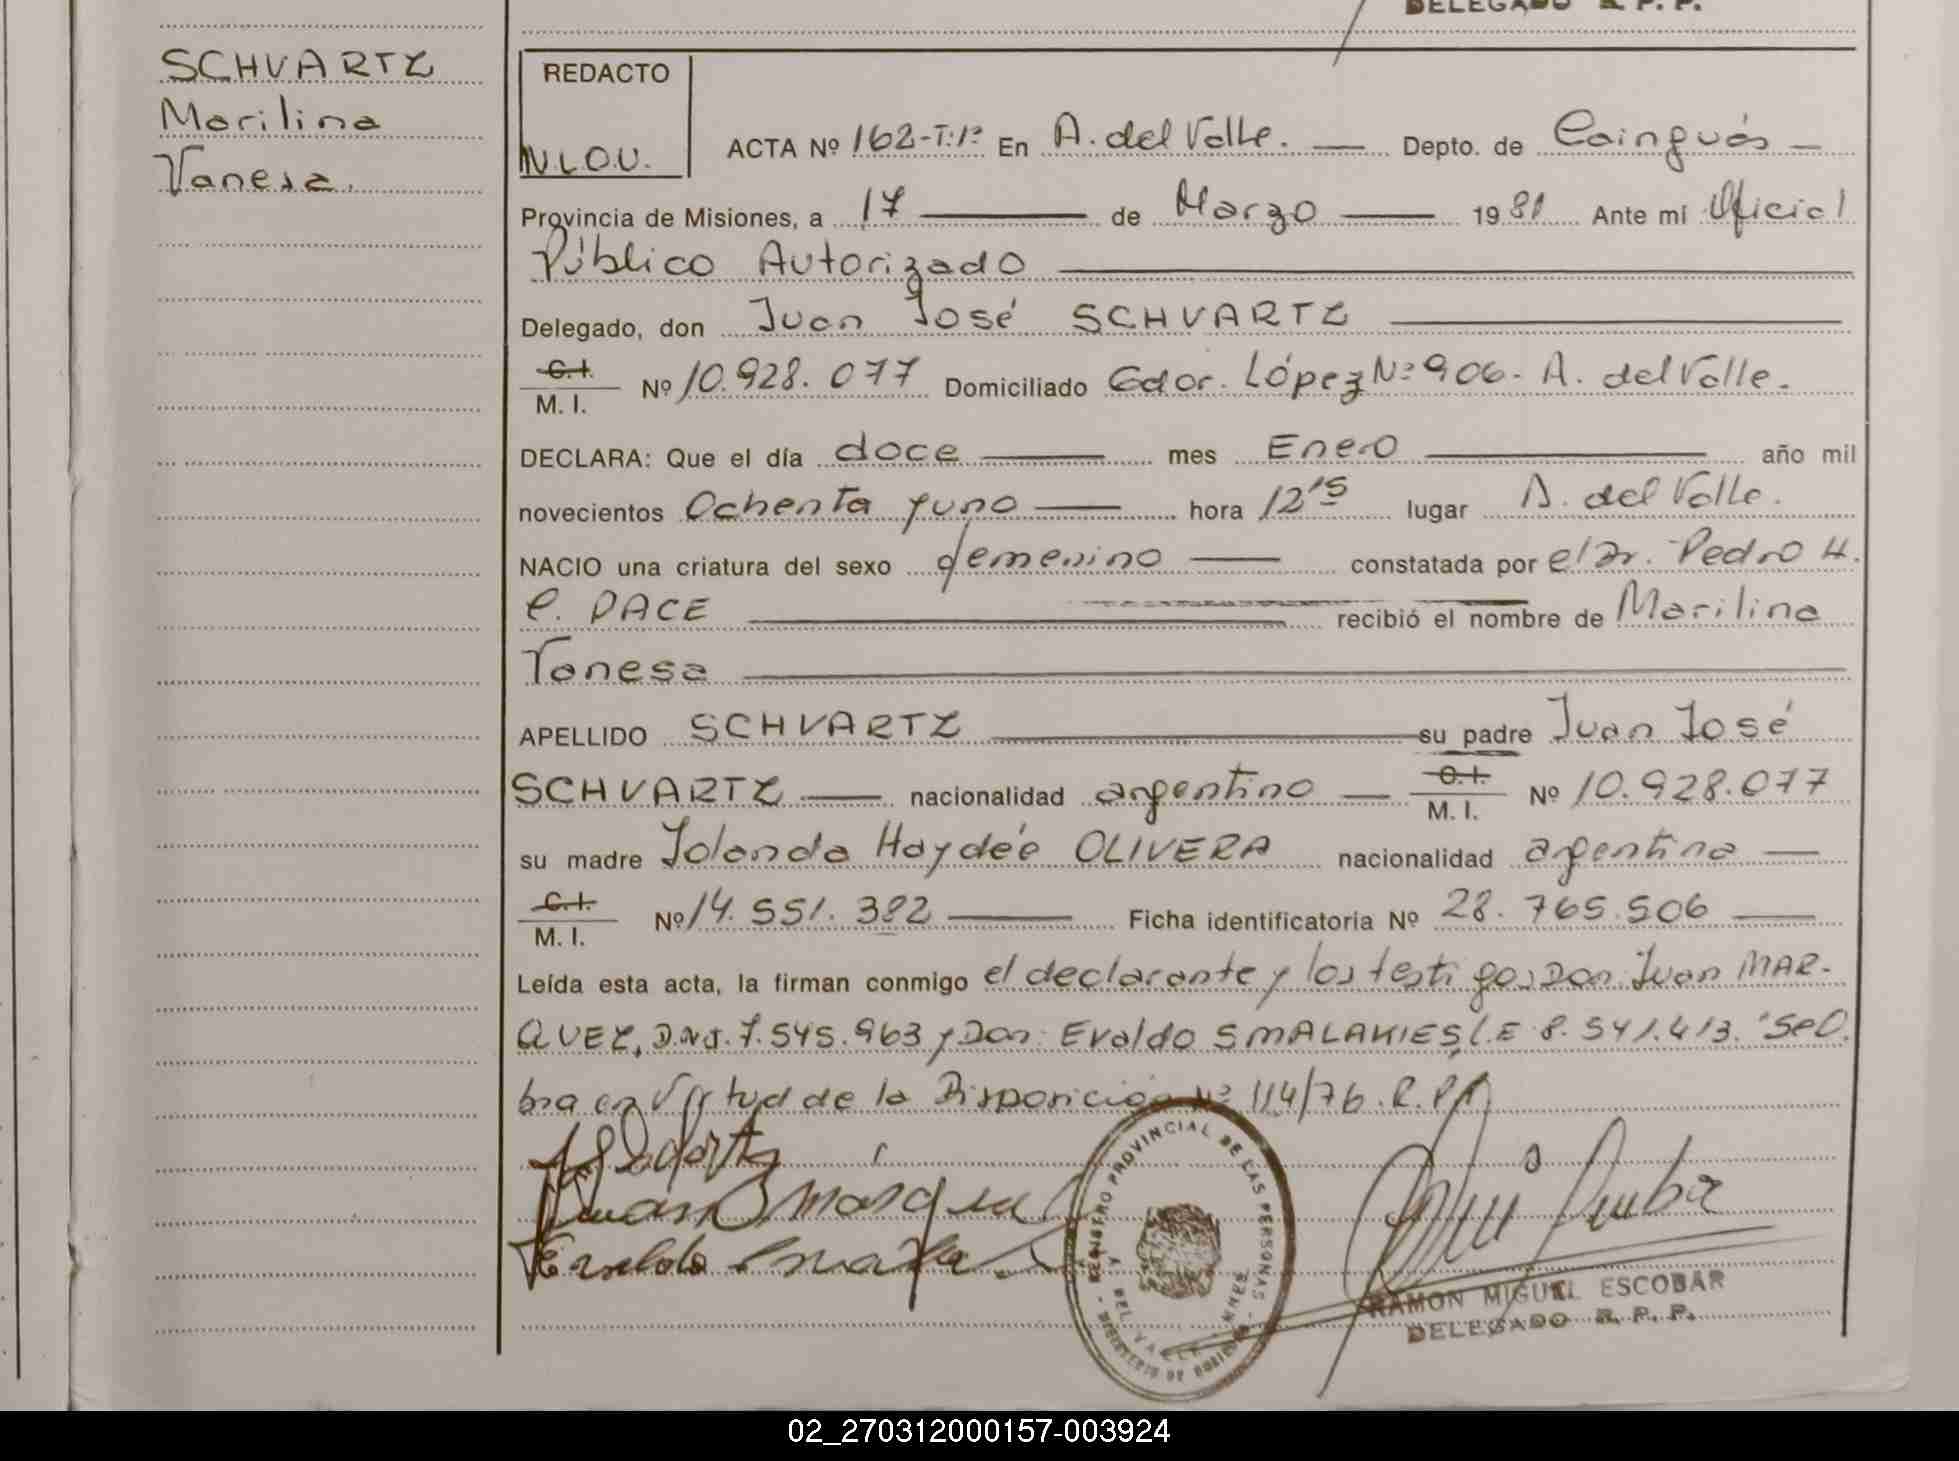 DELEGADO R. P. P.
SCHVARTZ
Marilina
Vanesa.
REDACTO
N.L.O.U.
ACTA Nº 162-T:1º En A. del Valle. Depto. de Cainguás
Provincia de Misiones, a 17 de Marzo 1981 Ante mí Oficial
Público Autorizado
Delegado, don Juan José SCHVARTZ
C.I. M. I. Nº 10.928.077 Domiciliado Gdor. López Nº 906- A. del Valle.
DECLARA: Que el día doce mes Enero año mil
novecientos Ochenta y uno hora 12'5 lugar A. del Valle.
NACIO una criatura del sexo femenino constatada por el Dr. Pedro H.
C. PACE recibió el nombre de Marilina
Vanesa
APELLIDO SCHVARTZ su padre Juan José
SCHVARTZ nacionalidad argentino C.I. M. I. Nº 10.928.077
su madre Iolanda Haydée OLIVERA nacionalidad argentina
C.I. M. I. Nº 14.551.382 Ficha identificatoria Nº 28.765.506
Leída esta acta, la firman conmigo el declarante y los testigos Don: Juan MAR-
QUEZ, D.N.I. 7.545.963 y Don: Evaldo SMALAKIES, L.E 8.541.413. "Se O.
bra en Virtud de la Disposición Nº 114/76. R.P.P
Juan Marquez
Evaldo
REGISTRO PROVINCIAL DE LAS PERSONAS
DEL VALLE - MNES.
MINISTERIO DE GOBIERNO
RAMON MIGUEL ESCOBAR
DELEGADO R. P. P.
02_270312000157-003924